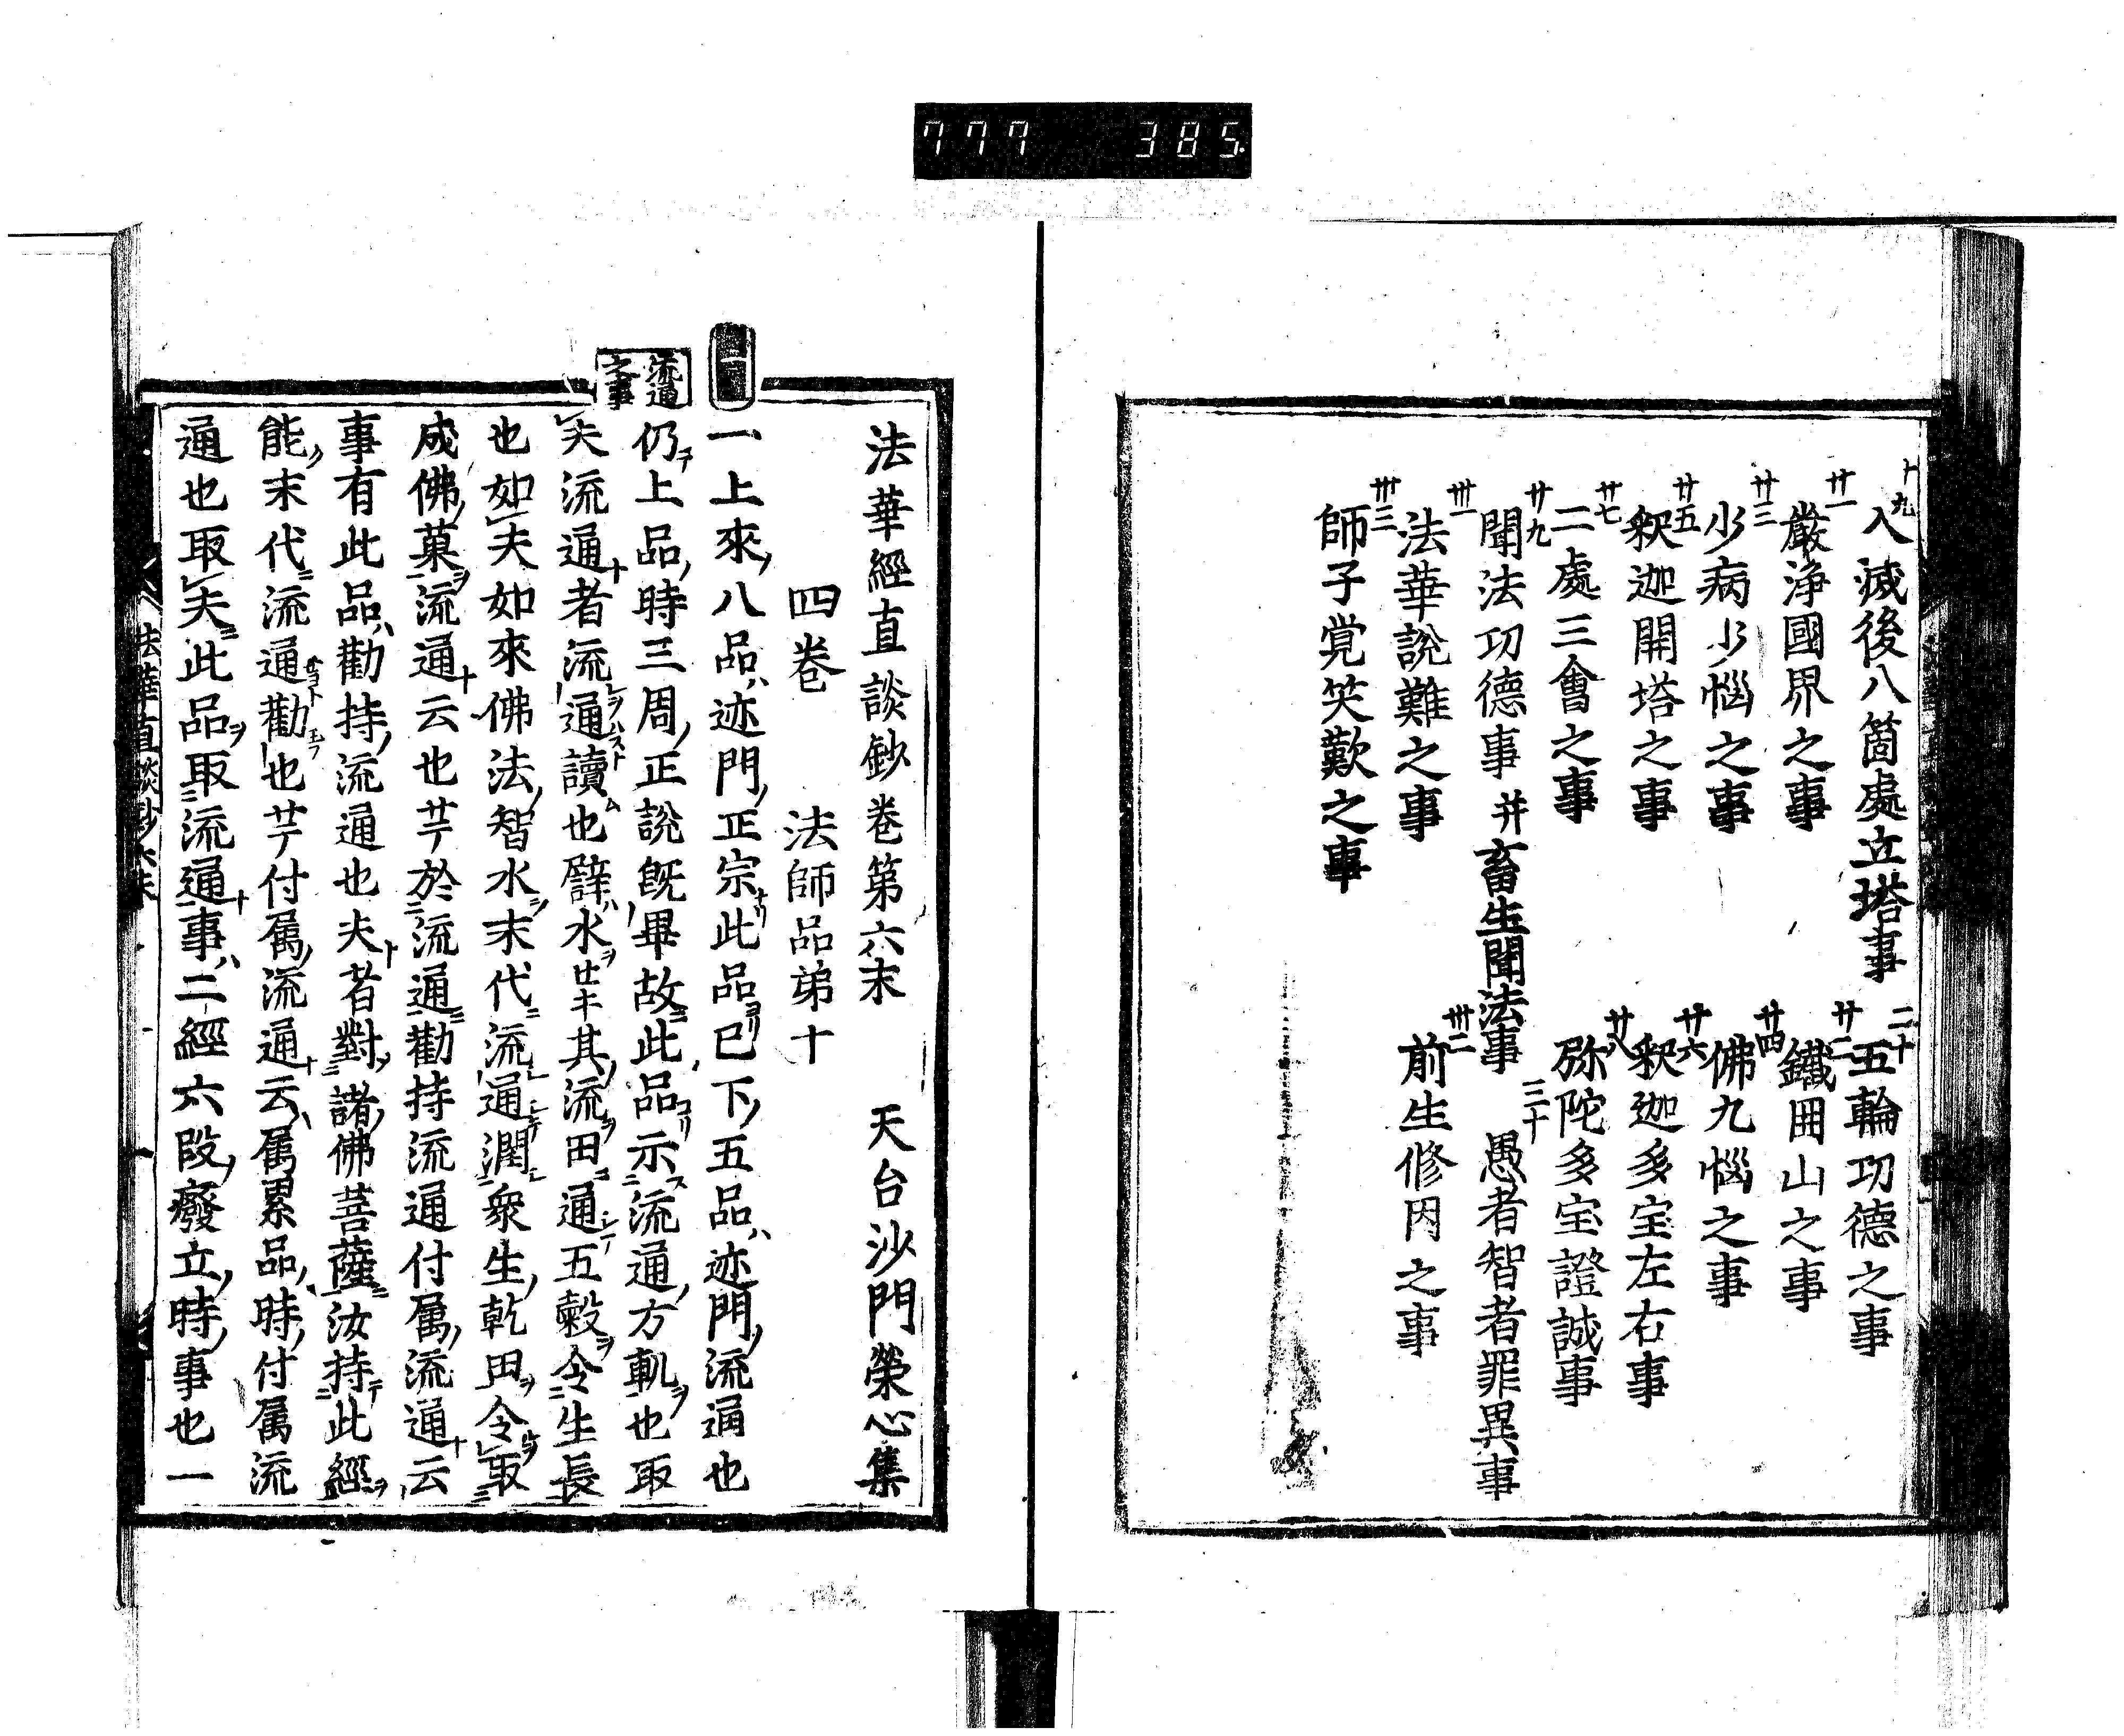 777 385
十九 入滅後八箇處立塔事 二十 五輪功德之事
廿一 嚴浄國界之事 廿二 鐵囲山之事
廿三 少病少惱之事 廿四 佛九惱之事
廿五 釈迦開塔之事 廿六 釈迦多宝左右事
廿七 二處三會之事 廿八 弥陀多宝證誠事
廿九 聞法功德事 并畜生聞法事 三十 愚者智者罪異事
卅一 法華說難之事 卅二 前生修因之事
卅三 師子覚笑歎之事
法華經直談鈔卷第六末 天台沙門榮心集
四卷 法師品第十
一
一上來ノ八品ハ迹門ノ正宗ナリ此品ヨリ已下ノ五品ハ迹門ノ流通也
流通之事
仍テ上品ノ時三周ノ正說既畢ル故ニ此品ヨリ示ス流通ノ方軌ヲ也取
夫流通ト者流レラハストハ通讀ム也譬ハ水ヲセキ其ノ流ヲ田ニ通シテ五穀ヲ令生長
也如夫如來佛法ノ智水ヲ末代ニ流レ通シテ潤ヒ衆生ノ乾田ヲ令取
成佛ノ菓ヲ流通ト云也サテ於流通ニ勸持流通付属ノ流通ト云
事有此品ハ勸持ノ流通也夫ト者對ノ諸ノ佛菩薩ニ汝持テ此經ヲ
能ク末代ニ流通セヨト勸玉フ也サテ付属ノ流通ト云ハ属累品ノ時ノ付属流
通也取夫ニ此品ヲ取流通ト事ハ二經六段ノ癈立ノ時ノ事也一
法華直談鈔六末